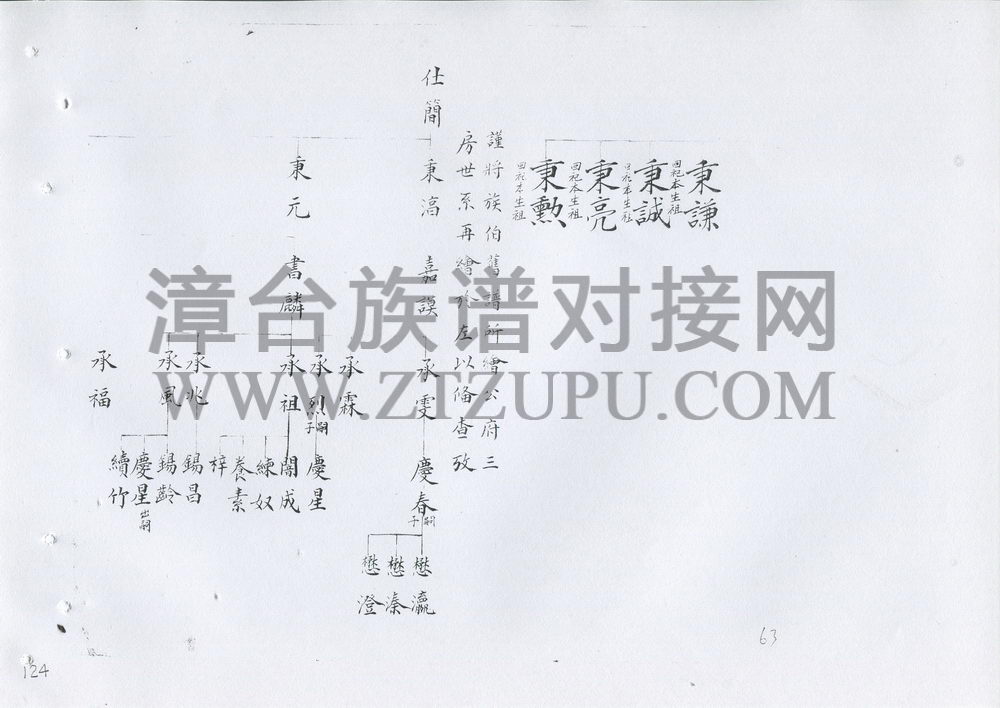 秉謙
回祀本生祖
秉誠
回祀本生祖
秉亮
回祀本生祖
秉勲
回祀本生祖
謹將族伯舊譜所繪公府三
房世系再繪於左以俻查攷
仕簡
秉滈
嘉謨
承雯
慶春
嗣子
懋瀛
懋溱
懋澄
秉元
書麟
承霖
承烈
嗣子
慶星
承祖
闇成
練奴
養素
梓
承兆
錫昌
承風
錫齡
慶星
出嗣
續竹
承福
漳台族谱对接网
WWW.ZTZUPU.COM
63
124